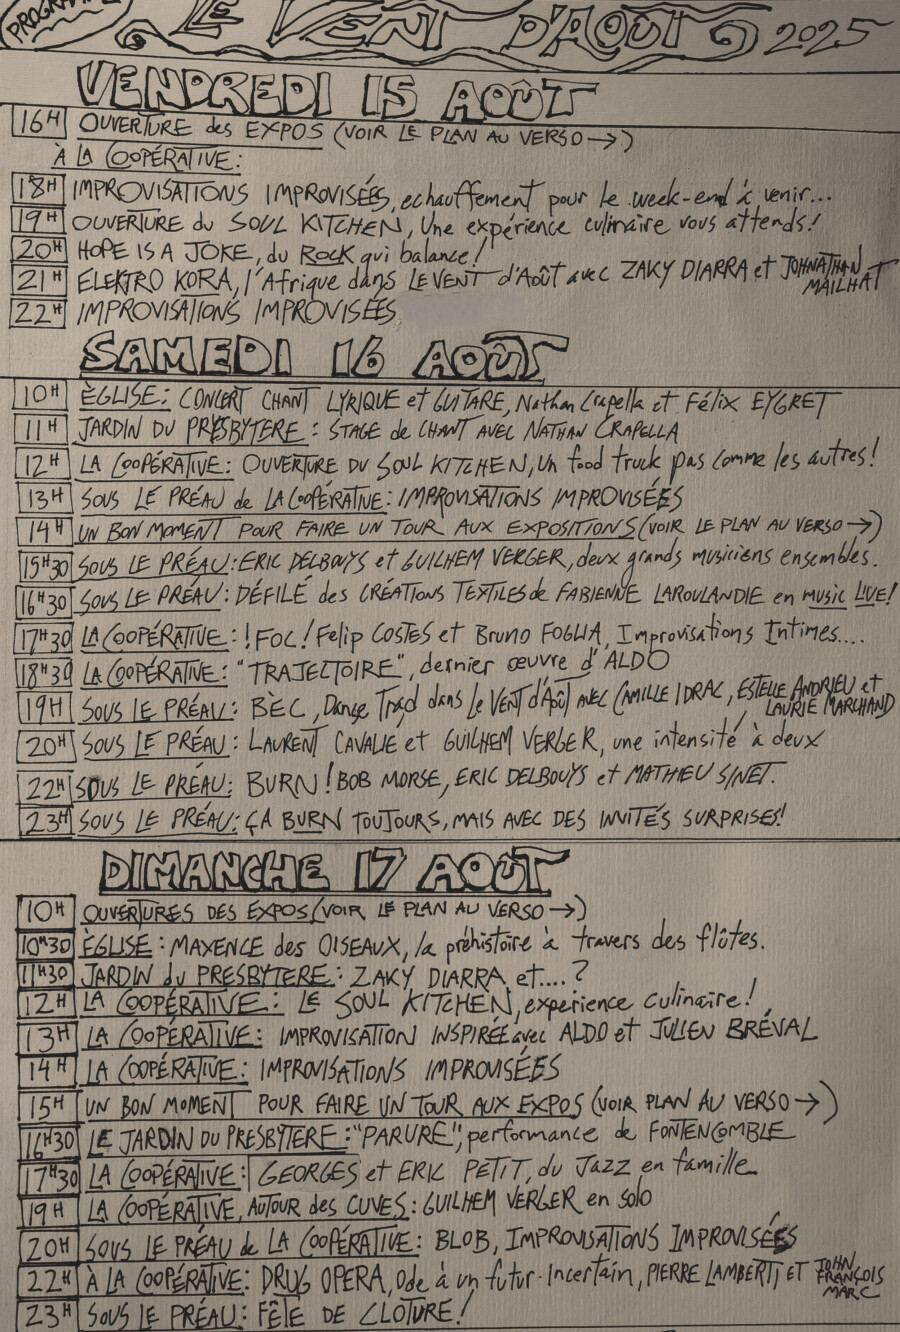 PROGRAMME LE VENT D'AOÛT 2025
VENDREDI 15 AOÛT
16H OUVERTURE des EXPOS (VOIR LE PLAN AU VERSO →)
À LA COOPÉRATIVE:
18H IMPROVISATIONS IMPROVISÉES, echauffement pour le week-end à venir...
19H OUVERTURE du SOUL KITCHEN, Une expérience culinaire vous attends!
20H HOPE IS A JOKE, du ROCK qui balance!
21H ELEKTRO KORA, l'Afrique dans LE VENT d'Août avec ZAKY DIARRA et JOHNATHAN MAILHAT
22H IMPROVISATIONS IMPROVISÉES
SAMEDI 16 AOÛT
10H ÈGLISE: CONCERT CHANT LYRIQUE et GUITARE, Nathan Crapella et Félix EYGRET
11H JARDIN DU PRESBYTERE: STAGE de CHANT AVEC NATHAN CRAPELLA
12H LA COOPÉRATIVE: OUVERTURE DU SOUL KITCHEN, Un food truck pas comme les autres!
13H SOUS LE PRÉAU de LA COOPÉRATIVE: IMPROVISATIONS IMPROVISÉES
14H UN BON MOMENT POUR FAIRE UN TOUR AUX EXPOSITIONS (VOIR LE PLAN AU VERSO →)
15H30 SOUS LE PRÉAU: ERIC DELBOUYS et GUILHEM VERGER, deux grands musiciens ensembles.
16H30 SOUS LE PRÉAU: DÉFILÉ des CRÉATIONS TEXTILES de FABIENNE LAROULANDIE en music LIVE!
17H30 LA COOPÉRATIVE: !FOC! Felip COSTES et Bruno FOGLIA, Improvisations Intimes....
18H30 LA COOPÉRATIVE: "TRAJECTOIRE", dernier œuvre d'ALDO
19H SOUS LE PRÉAU: BÈC, Danse Trad dans Le VENT d'Août AVEC CAMILLE IDRAC, ESTELLE ANDRIEU et LAURIE MARCHAND
20H SOUS LE PRÉAU: LAURENT CAVALIE et GUILHEM VERGER, une intensité à deux
22H SOUS LE PRÉAU: BURN! BOB MORSE, ERIC DELBOUYS et MATHIEU SINET.
23H SOUS LE PRÉAU: ÇA BURN TOUJOURS, MAIS AVEC DES INVITÉS SURPRISES!
DIMANCHE 17 AOÛT
10H OUVERTURES DES EXPOS (VOIR LE PLAN AU VERSO →)
10H30 ÈGLISE: MAXENCE des OISEAUX, la préhistoire à travers des flûtes.
11H30 JARDIN du PRESBYTERE: ZAKY DIARRA et....?
12H LA COOPÉRATIVE: LE SOUL KITCHEN, experience culinaire!
13H LA COOPÉRATIVE: IMPROVISATION INSPIRÉE avec ALDO et JULIEN BRÉVAL
14H LA COOPÉRATIVE: IMPROVISATIONS IMPROVISÉES
15H UN BON MOMENT POUR FAIRE UN TOUR AUX EXPOS (VOIR PLAN AU VERSO →)
16H30 LE JARDIN DU PRESBYTERE: "PARURE", performance de FONTENCOMBLE
17H30 LA COOPÉRATIVE: GEORGES et ERIC PETIT, du Jazz en famille
19H LA COOPÉRATIVE, AUTOUR des CUVES: GUILHEM VERGER en solo
20H SOUS LE PRÉAU de LA COOPÉRATIVE: BLOB, IMPROVISATIONS IMPROVISÉES
22H À LA COOPÉRATIVE: DRUG OPERA, Ode à un futur Incertain, PIERRE LAMBERTI ET JOHN FRANÇOIS MARC
23H SOUS LE PRÉAU: FÊTE DE CLOTURE!